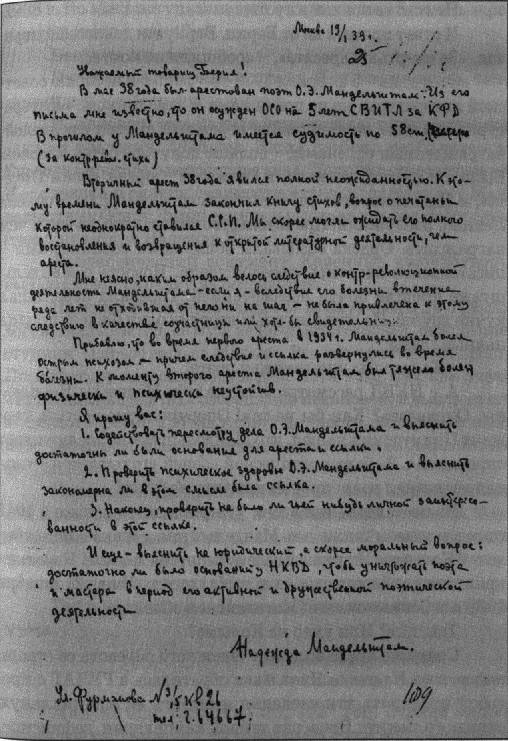 Москва 19/I 39 г.
25
Уважаемый товарищ Берия!
В мае 38 года был арестован поэт О.Э. Мандельштам. Из его
письма мне известно, что он осужден ОСО на 5 лет СВИТЛ за КРД
В прошлом у Мандельштама имеется судимость по 58 ст.
(За контррев. стихи)
Вторичный арест 38 года явился полной неожиданностью. К это-
му времени Мандельштам закончил книгу стихов, вопрос о печатаньи
которой неоднократно ставился С.С.П. Мы скорее могли ожидать его полного
востановленья и возвращения к открытой литературной деятельности, чем
ареста.
Мне неясно, каким образом велось следствие о контр-революционной
деятельности Мандельштама – если я – вследствие его болезни в течение
ряда лет не отходившая от него ни на шаг – не была привлечена к этому
следствию в качестве соучастницы или хотя-бы свидетельницы.
Прибавлю, что во время первого ареста в 1934 г. Мандельштам болел
острым психозом – причем следствие и ссылка развернулись во время
болезни. К моменту второго ареста Мандельштам был тяжело болен
физически и психически неустойчив.
Я прошу вас:
1. Содействовать пересмотру дела О.Э. Мандельштама и выяснить
достаточны ли были основания для ареста и ссылки.
2. Проверить психическое здоровье О.Э. Мандельштама и выяснить
закономерна ли в этом смысле была ссылка.
3. Наконец, проверить не было ли чьей нибудь личной заинтересо-
ванности в этой ссылке.
И еще – выяснить не юридический, а скорее моральный вопрос:
достаточно ли было оснований у НКВД, чтобы уничтожать поэта
и мастера в период его активной и дружественной поэтической
деятельности
Надежда Мандельштам.
Ул. Фурманова № 3/5 кв 26
тел. Г. 64667
109